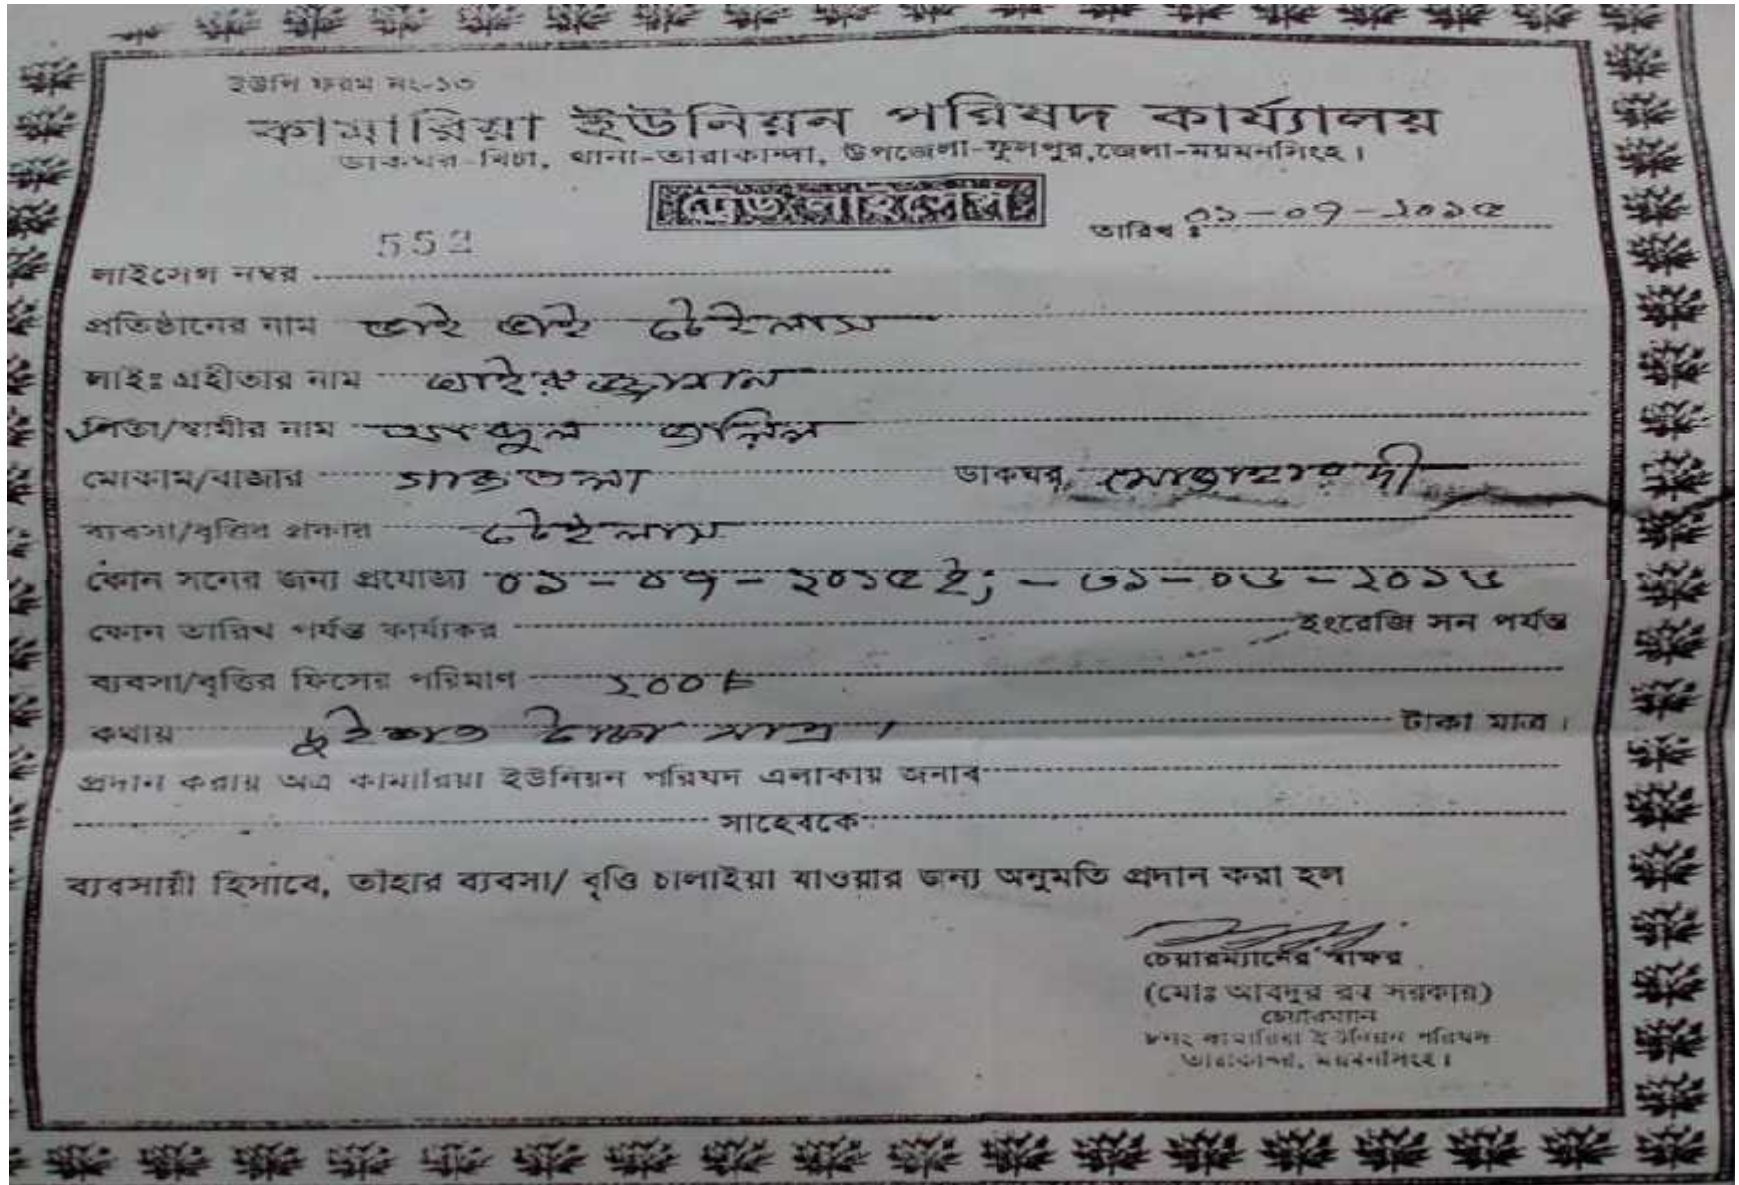 ইউপি ফরম নং-১৩
কামারিয়া ইউনিয়ন পরিষদ কার্য্যালয়
ডাকঘর-খিচা, থানা-তারাকান্দা, উপজেলা-ফুলপুর,জেলা-ময়মনসিংহ।
ট্রেড লাইসেন্স
তারিখ : ০১-০৭-২০১৫
552
লাইসেন্স নম্বর
প্রতিষ্ঠানের নাম ভাই ভাই টেইলাস
লাইঃ গ্রহীতার নাম খাইরুজ্জামান
পিতা/স্বামীর নাম আব্দুল জলিল
মোকাম/বাজার গাছতলা ডাকঘর
ব্যবসা/বৃত্তির প্রকার টেইলাস
কোন সনের জন্য প্রযোজ্য ০১-০৭-২০১৫ ইং - ৩১-০৬-২০১৬
কোন তারিখ পর্যন্ত কার্যকর ইংরেজি সন পর্যন্ত
ব্যবসা/বৃত্তির ফিসের পরিমাণ ২০০৳
কথায় দুইশত টাকা মাত্র। টাকা মাত্র।
প্রদান করায় অত্র কামারিয়া ইউনিয়ন পরিষদ এলাকায় জনাব
সাহেবকে
ব্যবসায়ী হিসাবে, তাঁহার ব্যবসা/ বৃত্তি চালাইয়া যাওয়ার জন্য অনুমতি প্রদান করা হল
চেয়ারম্যানের স্বাক্ষর
(মোঃ আবদুর রব সরকার)
চেয়ারম্যান
৮নং কামারিয়া ইউনিয়ন পরিষদ
তারাকান্দা, ময়মনসিংহ।